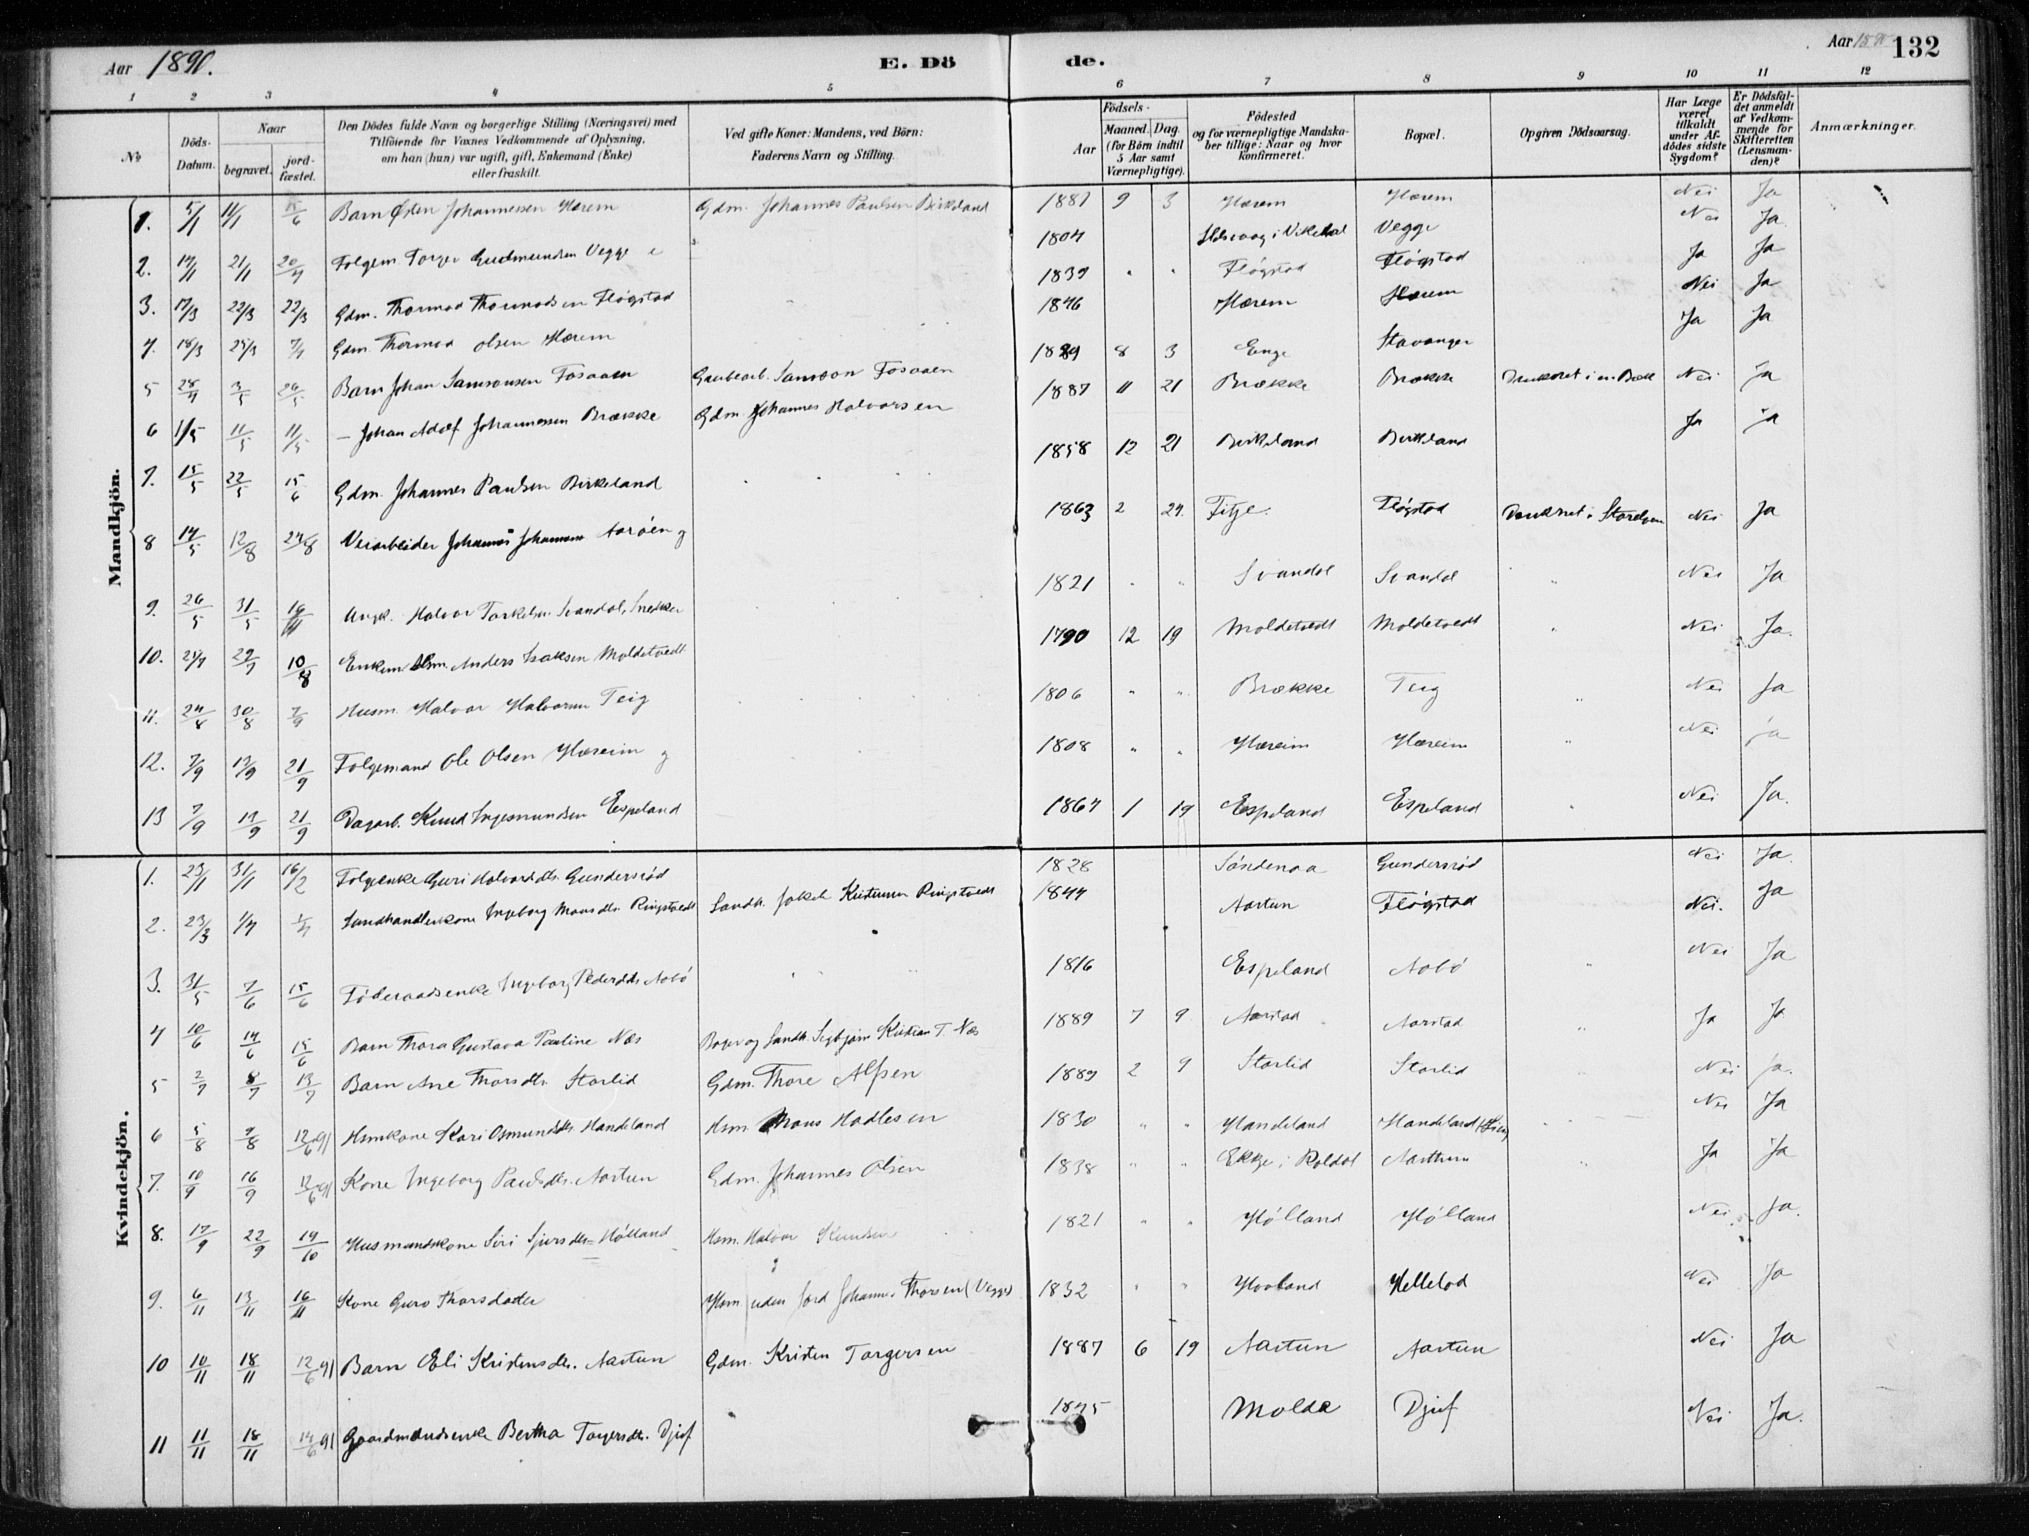 Aar 1890.
E. Dö
de.
Aar 1890
132
1 2 3 4 5 6 7 8 9 10 11 12
No
Döds-Datum.
Naar
begravet.
jord-fæstet.
Den Dödes fulde Navn og borgerlige Stilling (Næringsvei) med
Tilföiende for Voxnes Vedkommende af Oplysning,
om han (hun) var ugift, gift, Enkemand (Enke)
eller fraskilt.
Ved gifte Koner: Mandens, ved Börn:
Faderens Navn og Stilling.
Födsels-
Aar
Maaned. Dag.
(for Börn indtil
5 Aar samt
Værnepligtige).
Födested
og for værnepligtige Mandska-
ber tillige: Naar og hvor
konfirmeret.
Bopæl.
Opgiven Dödsaarsag.
Har Læge
været
tilkaldt
under Af-
dödes sidste
Sygdom?
Er Dödsfal-
det anmeldt
af Vedkom-
mende for
Skifteretten
(Lensman-
den)?
Anmærkninger.
Mandkjön.
1. 5/1 11/1 15/6 Barn Østen Johannessen Hærem Gdm. Johannes Paulsen Birkeland 1887 9 3 Hærem Hærem Nei Ja
2. 14/1 21/1 20/4 Folgem. Torger Gudmundsen Vegge 1804 Vegge Nei Ja.
3. 17/3 22/3 22/3 Gdm. Thormod Thormodsen Fløgstad 1839 " " Fløgstad Fløgstad Ja Ja
4. 18/3 25/3 7/4 Gdm. Thormod Olsen Hærem 1846 Hærem Hærem Nei Ja
5 28/4 3/5 26/5 Barn Johan Samsonsen Fosaaen Samson Fosaaen 1889 8 3 Enge Stavanger Ja Ja
6 1/5 11/5 11/5 — Johan Adolf Johannessen Brække Gdm. Johannes Halvorsen 1887 11 21 Brække Brække Druknet i en Bæk Nei Ja
7. 15/5 22/5 15/6 Gdm. Johannes Paulsen Birkeland 1858 12 21 Birkeland Birkeland Ja Ja
8 14/5 12/8 24/8 Veiarbeider Johannes Johannesen Aarøen g 1863 2 24. Fitje. Fløgstad Druknet i Storelven Nei Ja
9. 26/5 31/5 Ungk. Halvor Torkelsen Svandal, Snedker 1821 " " Svandal Svandal " Nei Ja
10. 25/7 29/7 10/8 Enkem. Anders Isaksen Moldetvedt 1790 12 19 Moldetvedt Moldetvedt " Nei Ja.
11. 24/8 30/8 7/9 Husm. Halvor Halvorsen Teig 1806 " " Brække Teig " Nei Ja
12. 7/9 13/9 21/9 Folgemand Ole Olsen Hæreim g 1808 " " Hæreim Hæreim " Nei ja
13 7/9 13/9 21/9 Dagarb. Knud Ingemundsen Espeland 1864 1 19 Espeland Espeland " Nei Ja.
Kvindekjön.
1. 23/1 31/1 16/2 Folgenke Guri Halvorsdtr. Gundersrød 1828 Søndenaa Gundersrød Nei Ja.
2. 23/3 1/4 1/4 Landhandlerkone Ingeborg Monsdtr. Ringstvedt Landh. Jakob Kristensen Ringstvedt 1844 Aartun Fløgstad Nei. Ja
3. 31/5 7/6 15/6 Føderaadsenke Ingeborg Pedersdtr. Aabø 1816 Espeland Aabø " Nei Ja
4 10/6 14/6 15/6 Barn Thora Gustava Pauline Næs Kristian T. Næs 1889 7 9 Aarstad Aarstad " Ja Ja
5 2/7 8/7 13/7 Barn Ane Thorsdtr. Storlid Gdm. Thore Alfsen 1889 2 9 Storlid Storlid Nei ja.
6 5/8 9/8 12/6 91 Hsmkone Kari Osmundsdtr. Handeland Hsm. Mons Hadlesen 1830 " " Handeland Handeland " Nei Ja
7. 10/9 16/9 12/6 91 Kone Ingeborg Paulsdtr. Aartun Gdm. Johannes Olsen 1838 " " Ekkje i Roldal Aarthun " Ja Ja
8. 17/9 22/9 19/10 Husmandskone Siri Sjursdtr. Hølland Hsm. Halvor Knudsen 1821 " " Hølland Hølland Nei Ja.
9. 6/11 13/11 16/11 Kone Guro Thorsdatter Hsm uden Jord Johannes Thorsen (Vegge) 1832 " " Hovland Hellelod Nei Ja
10 10/11 18/11 12/6 91 Barn Eli Kristensdtr. Aartun Gdm. Kristen Torgersen 1887 6 19 Aartun Aartun Nei Ja
11 11/11 18/11 14/6 91 Gaardmandsenke Bertha Torgersdtr. Djuf Molde Djuf Nei Ja.